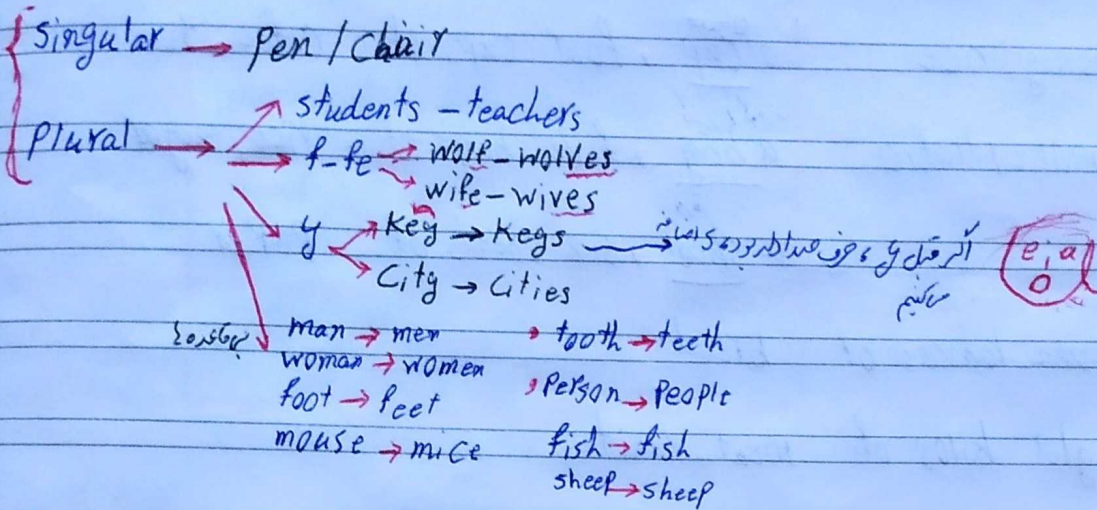 Singular → Pen / Chair
Plural → students - teachers
f - fe → wolf - wolves
wife - wives
y → key → keys → اگر قبل y، حرف صدادار بود، s اضافه
میکنیم
e, a
o
City → Cities
بی قاعده
man → men
woman → women
foot → feet
mouse → mice
tooth → teeth
Person → People
fish → fish
sheep → sheep